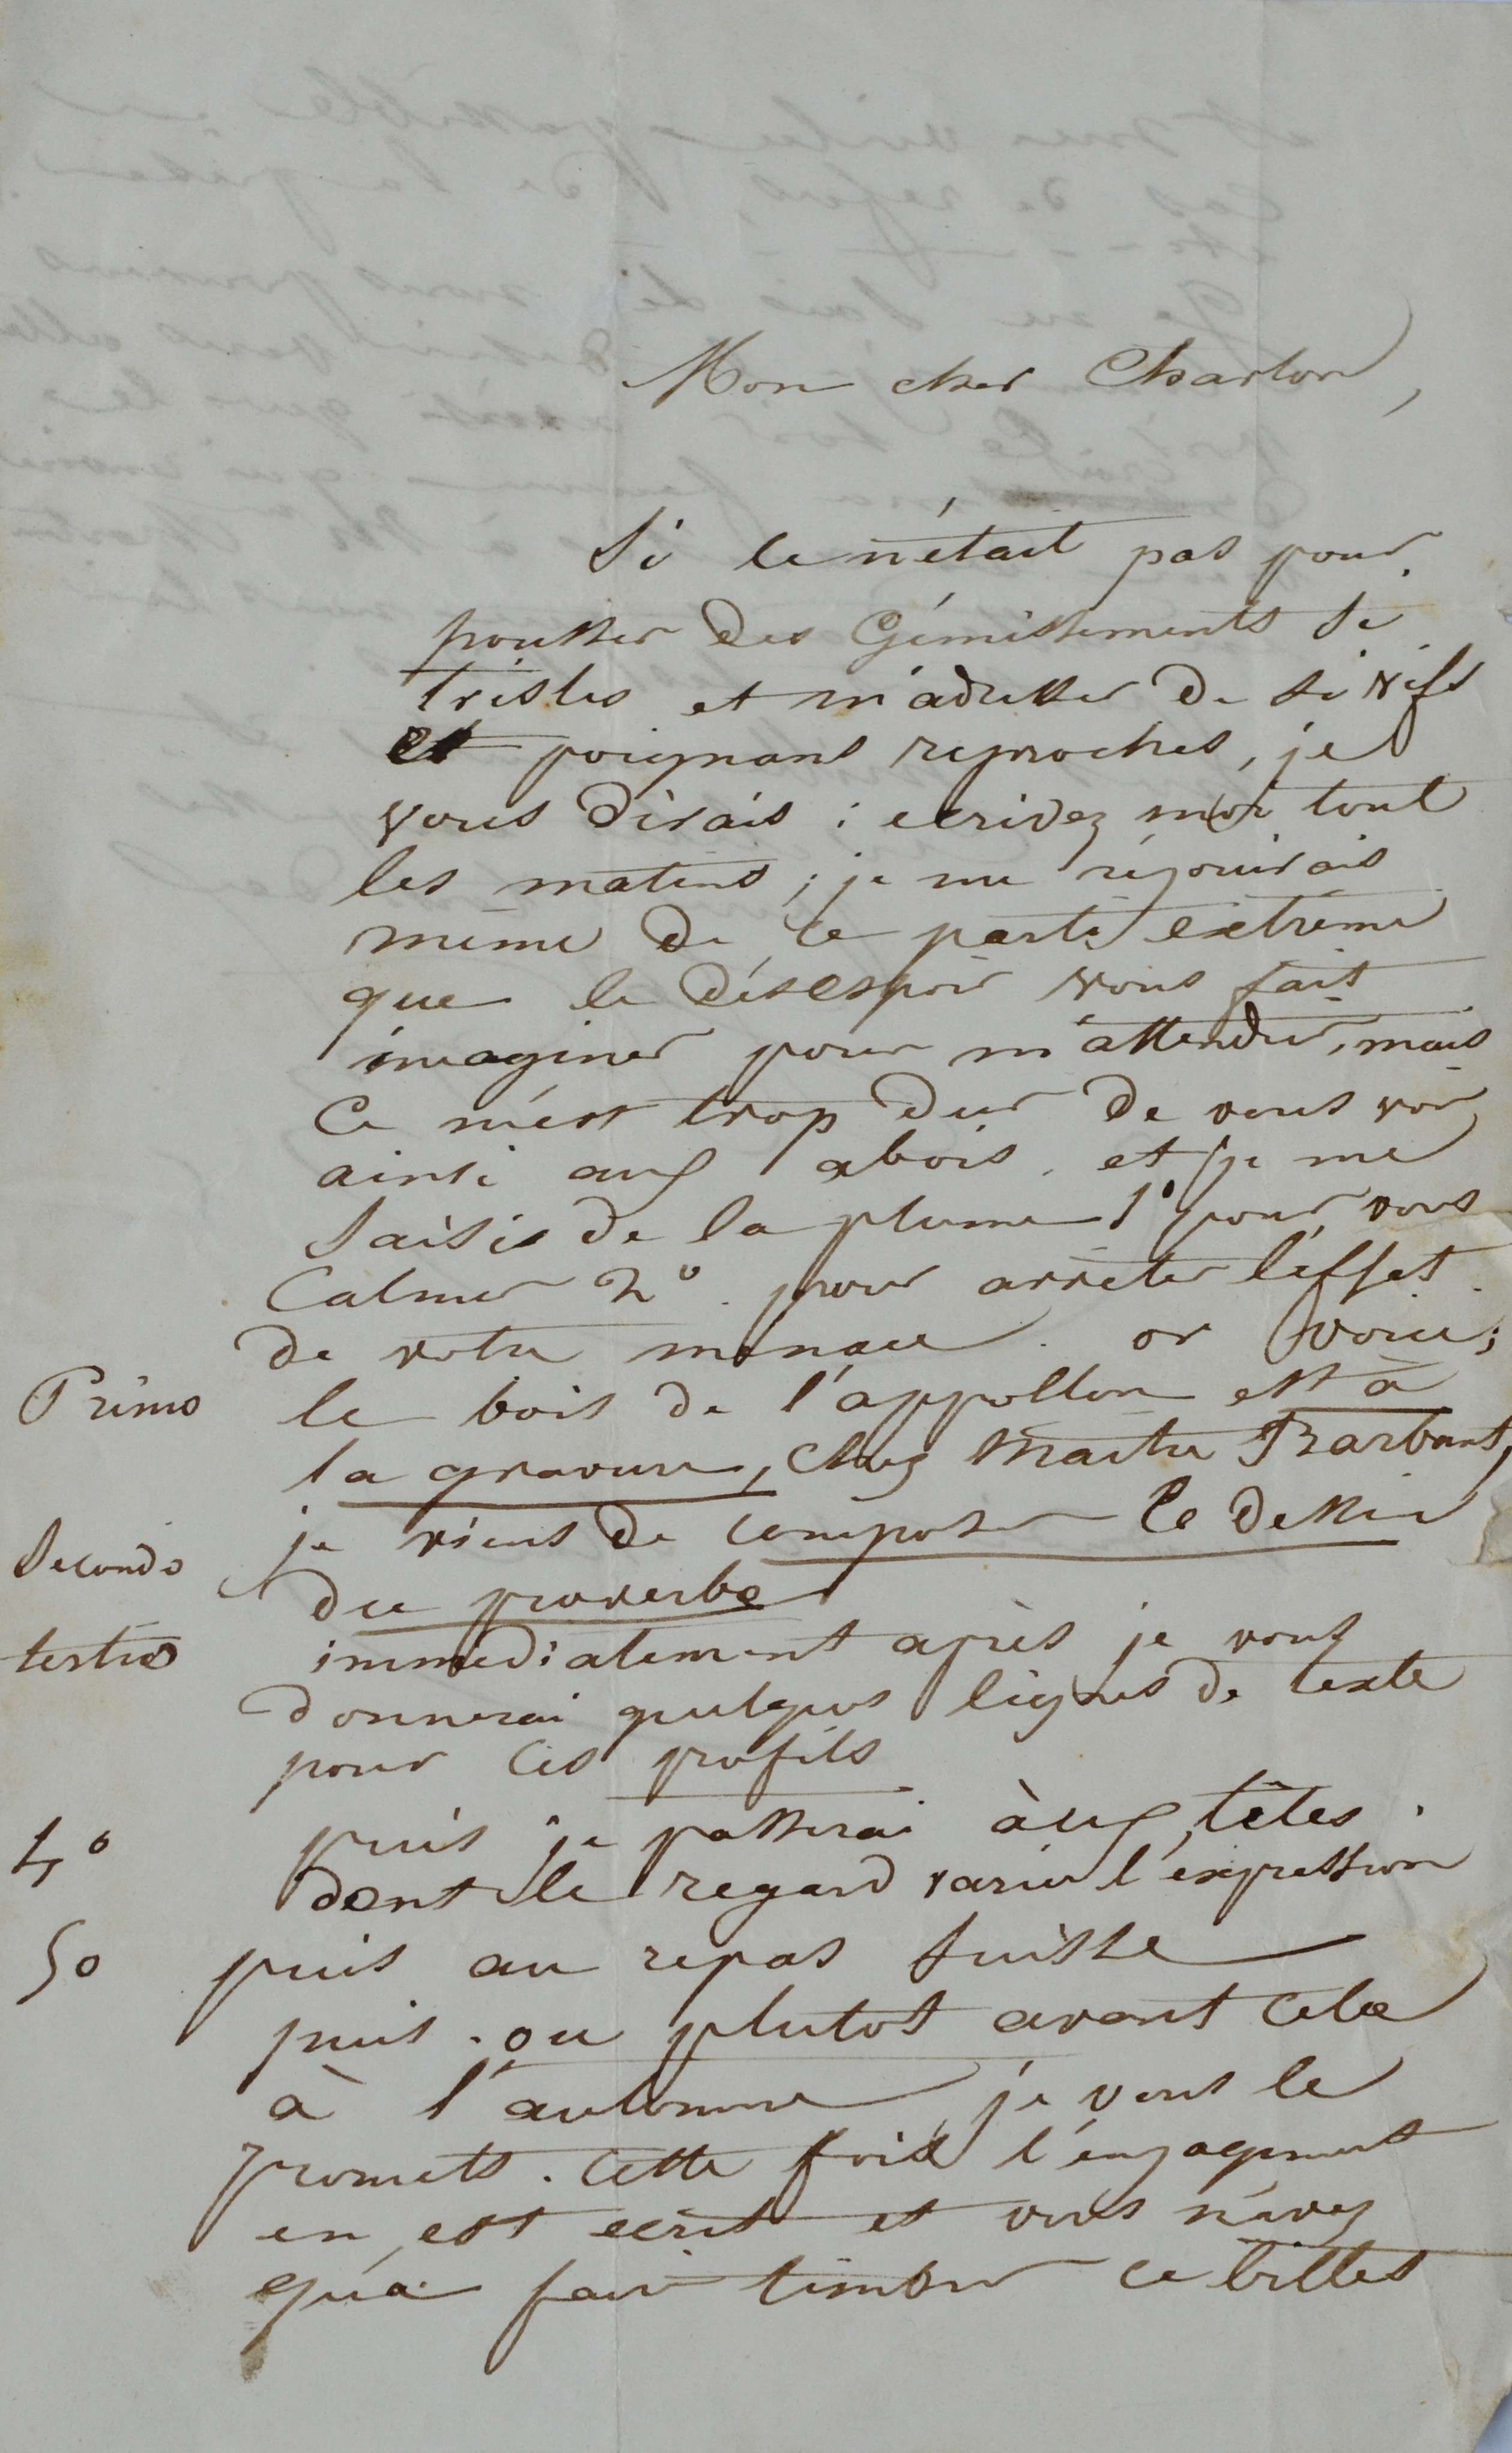 Mon cher Charton,
Si ce n'était pas pour
pousser des Gémissements si
tristes et m'adresser de si vifs
et poignans reproches, je
vous dirais : ecrivez moi tout
les matins ; je me réjouirais
même de ce parti extrême
que le désespoir vous fait
imaginer pour m'attendrir, mais
Ce m'est trop dur de vous voir
ainsi aux abois. et je me
saisis de la plume 1° pour vous
Calmer 2°. pour arrêter l'effet
de votre menace. or voici ;
Primo le bois de l'appollon est à
la gravure, chez Maitre Barbant,
Secondo je viens de composer le dessin
du proverbe
tertio immédiatement après je vous
donnerai quelques lignes de texte
pour ces profils
4° puis je passerai aux têtes
dont le regard varie l'expression
5° puis au repas suisse
puis. ou plutot avant cela
à l'automne, je vous le
promets. Cette fois l'engagement
en est ecrit et vous n'avez
qu'à faire timbrer ce billet